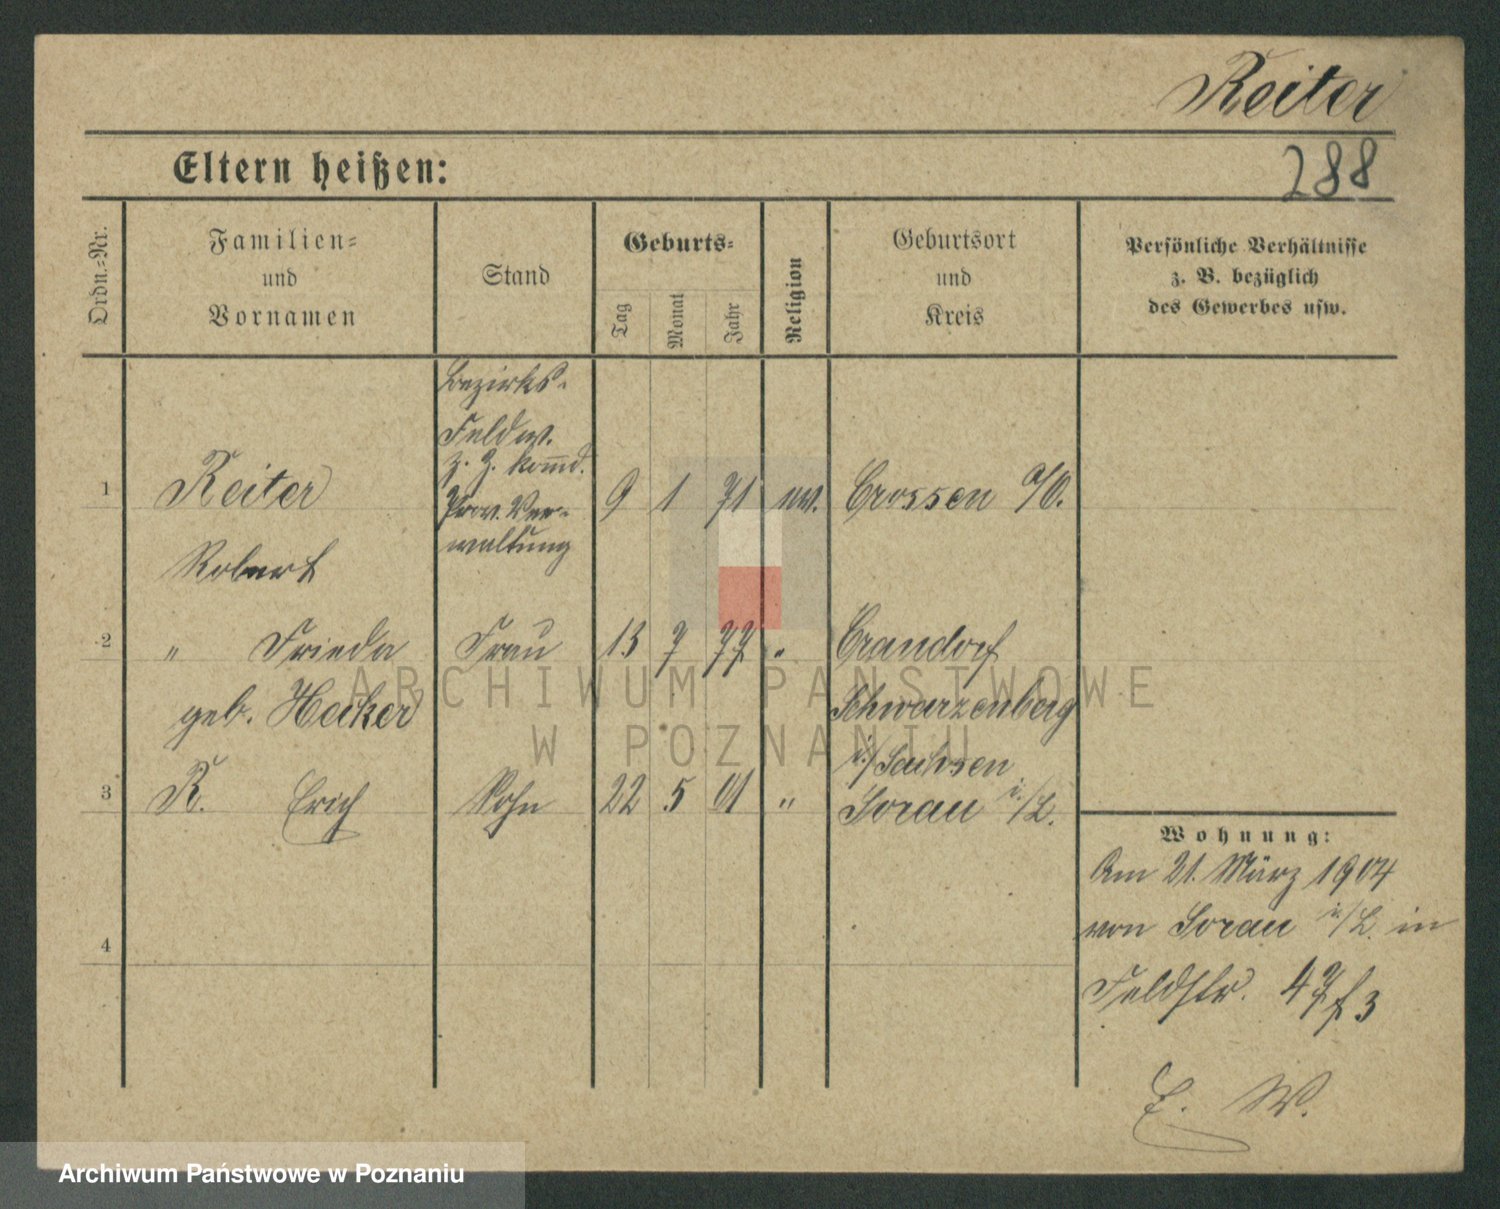 Reiter
288
Eltern heißen:
Ordn.-Nr.
Familien-
und
Vornamen
Stand
Geburts-
Tag
Monat
Jahr
Religion
Geburtsort
und
Kreis
Persönliche Verhältnisse
z. B. bezüglich
des Gewerbes usw.
Bezirks-
Feldw.
z. Z. komd.
Prov. Ver-
waltung
1 Reiter 9 1 71 ev. Crossen a/O.
Robert
2 " Frieda Frau 13 7 77 " Crandorf
geb. Hecker Schwarzenberg
i./Sachsen
3 R. Erich Sohn 22 5 01 " Sorau i./L.
4
Wohnung:
Am 21. März 1904
von Sorau i/L. in
Feldstr. 47 f 3
E. W.
ARCHIWUM PAŃSTWOWE
W POZNANIU
Archiwum Państwowe w Poznaniu